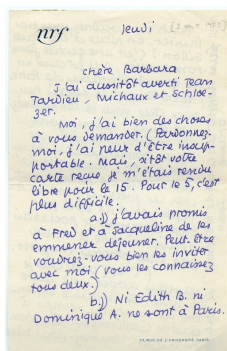 nrf
Jeudi
chère Barbara
J'ai aussitôt averti Jean
Tardieu, Michaux et Schloe-
zer.
Moi, j'ai bien des choses
à vous demander. (Pardonnez-
moi, j'ai peur d'être insup-
portable. Mais, sitôt votre
carte reçue je m'étais rendu
libre pour le 15. Pour le 5, c'est
plus difficile.
a.)) j'avais promis
à Fred et à Jacqueline de les
emmener déjeuner. Peut-être
voudrez-vous bien les inviter
avec moi (vous les connaissez
tous deux.)
b.)) Ni Edith B. ni
Dominique A. ne sont à Paris.